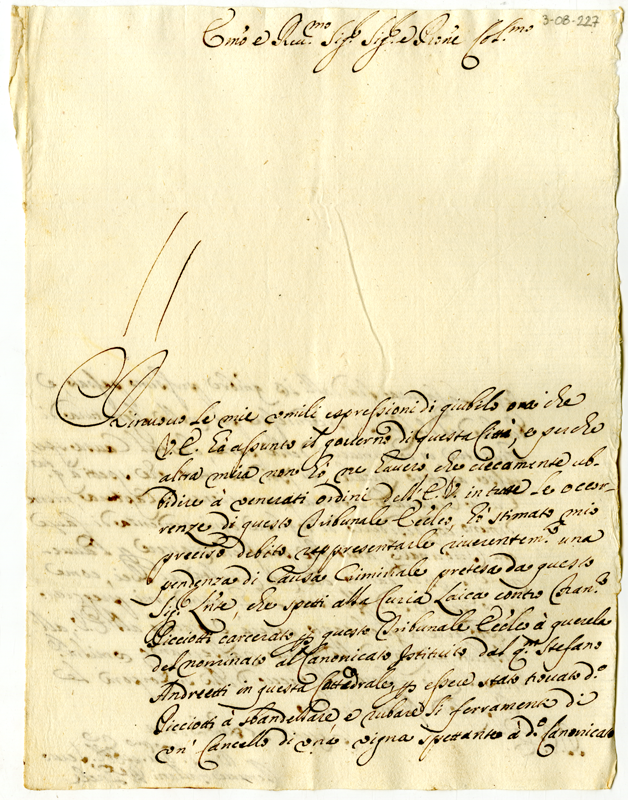 3-08-227
Emo e Reu.mo Sig.r Sig.r e Prone Col.mo
Rinouo le mie umili espressioni di giubilo ora che
V.E. hà assunto il gouerno di questa Città, e perche
altra mira non hò ne hauerò che ciecamente ub-
bidire à venerati ordini dell'E.V. in tutte le occor-
renze di questo Tribunale Eccleo, hò stimato mio
preciso debito rappresentarle riuerentem.e una
pendenza di Causa Criminale pretesa da questo
Sig.r Lnte, che spetti alla Curia Laica contro Fran.co
Picciotti carcerato p questo Tribunale Eccleo à querela
del nominato al Canonicato Istituito dal q.m Stefano
Andreetti in questa Cattedrale, p essere stato trouato d.o
Picciotti à sbandellare e rubare li ferramenti di
un' Cancello di una vigna spettante à d.o Canonicato